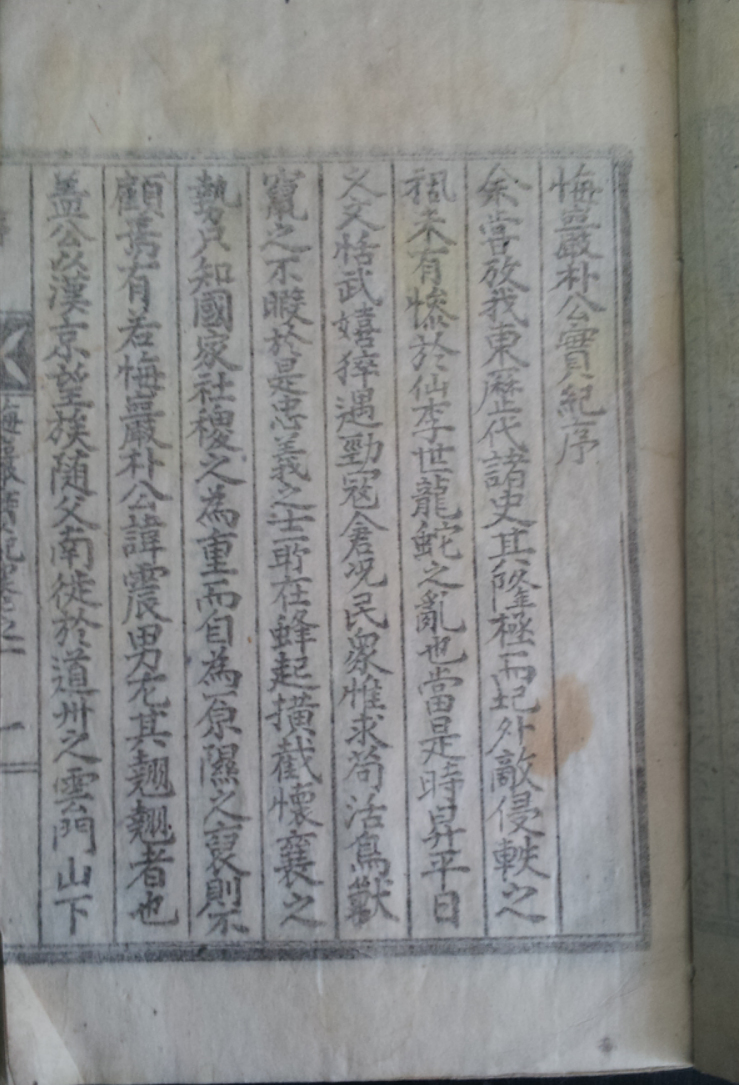 悔巖朴公實紀序
余嘗攷我東歷代諸史其隆極而圮外敵侵軼之
禍未有慘於仙李世龍蛇之亂也當是時昇平日
久文恬武嬉猝遇勁寇倉况民衆惟求苟活鳥獸
竄之不暇於是忠義之士所在蜂起橫截懷襄之
勢只知國家社稷之為重而自為原隰之裒則不
顧焉有若悔巖朴公諱震男尤其翹翹者也
盖公以漢京望族随父南徙於道州之雲門山下
悔巖實紀卷之一